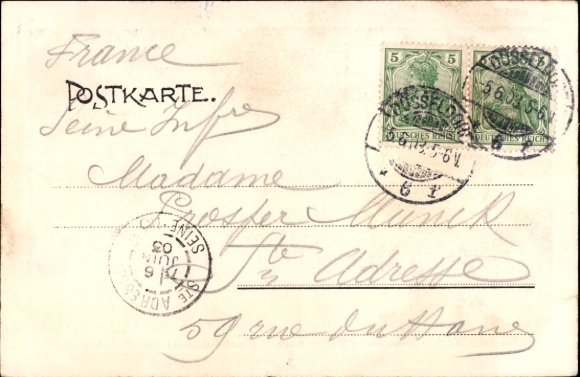 France
POSTKARTE.
Seine Infre
Madame
Prosper Munck
Ste Adresse
59 rue du Havre
5 5
DEUTSCHES REICH
DEUTSCHES REICH
DÜSSELDORF
5.6.03.5-6V.
* 6 1
DÜSSELDORF
5.6.03.5-6V.
* 6 1
STE ADRESSE
6
JUIN
03
SEINE